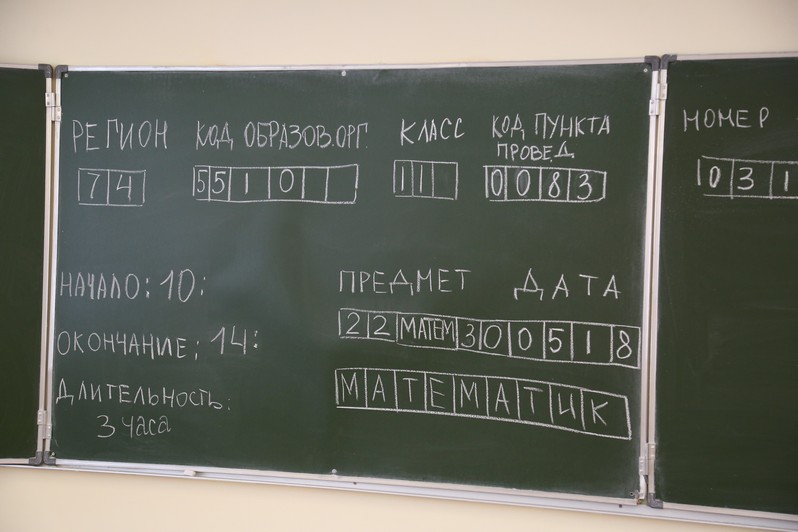 РЕГИОН КОД ОБРАЗОВ.ОРГ. КЛАСС КОД ПУНКТА ПРОВЕД.
74 55101 11 0083
НОМЕР
031
НАЧАЛО: 10:
ОКОНЧАНИЕ: 14:
ДЛИТЕЛЬНОСТЬ:
3 часа
ПРЕДМЕТ ДАТА
22 МАТЕМ 300518
МАТЕМАТИК